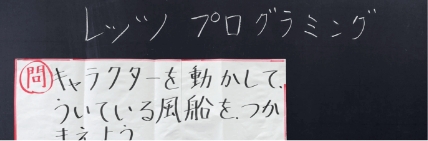 レッツ プログラミング
問 キャラクターを動かして、
ういている風船を、つか
まえよう